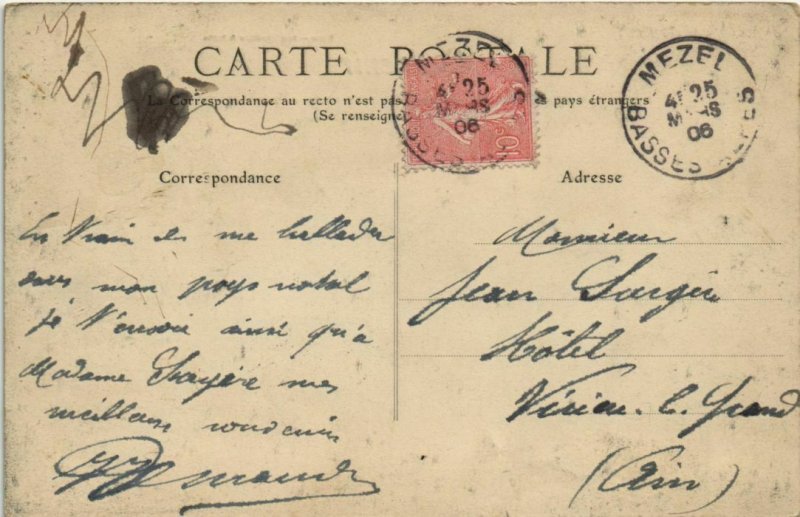 CARTE POSTALE
La Correspondance au recto n'est pas pays étrangers
(Se renseigne
MEZEL
4E 25
MARS
06
BASSES
10
MEZEL
4E 25
MARS
06
BASSES ALPES
Correspondance
Adresse
En train de me ballader
dans mon pays natal
je t'envoie ainsi qu'à
Madame mes
meilleurs souvenirs
Monsieur
Jean
Hôtel
Virieu-le-Grand
(Ain)